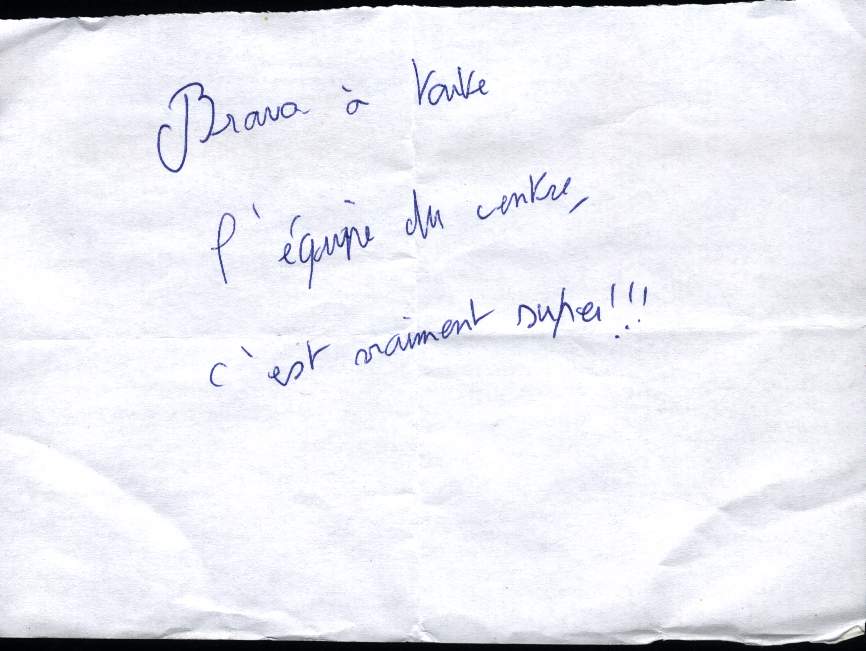 Bravo à toute
l'équipe du centre,
c'est vraiment super!!!